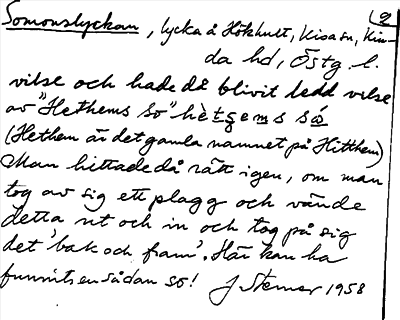 2
Somonslyckan, lycka å Hökhult, Kisa sn, Kin-
da hd, Östg. l.
vilse och hade då blivit ledd vilse
av "Hethems so" hètšems só
(Hethem är det gamla namnet på Hitthem)
Man hittade då rätt igen, om man
tog av sig ett plagg och vände
detta ut och in och tog på sig
det 'bak och fram'. Här kan ha
funnits en sådan so! J Stemer 1958